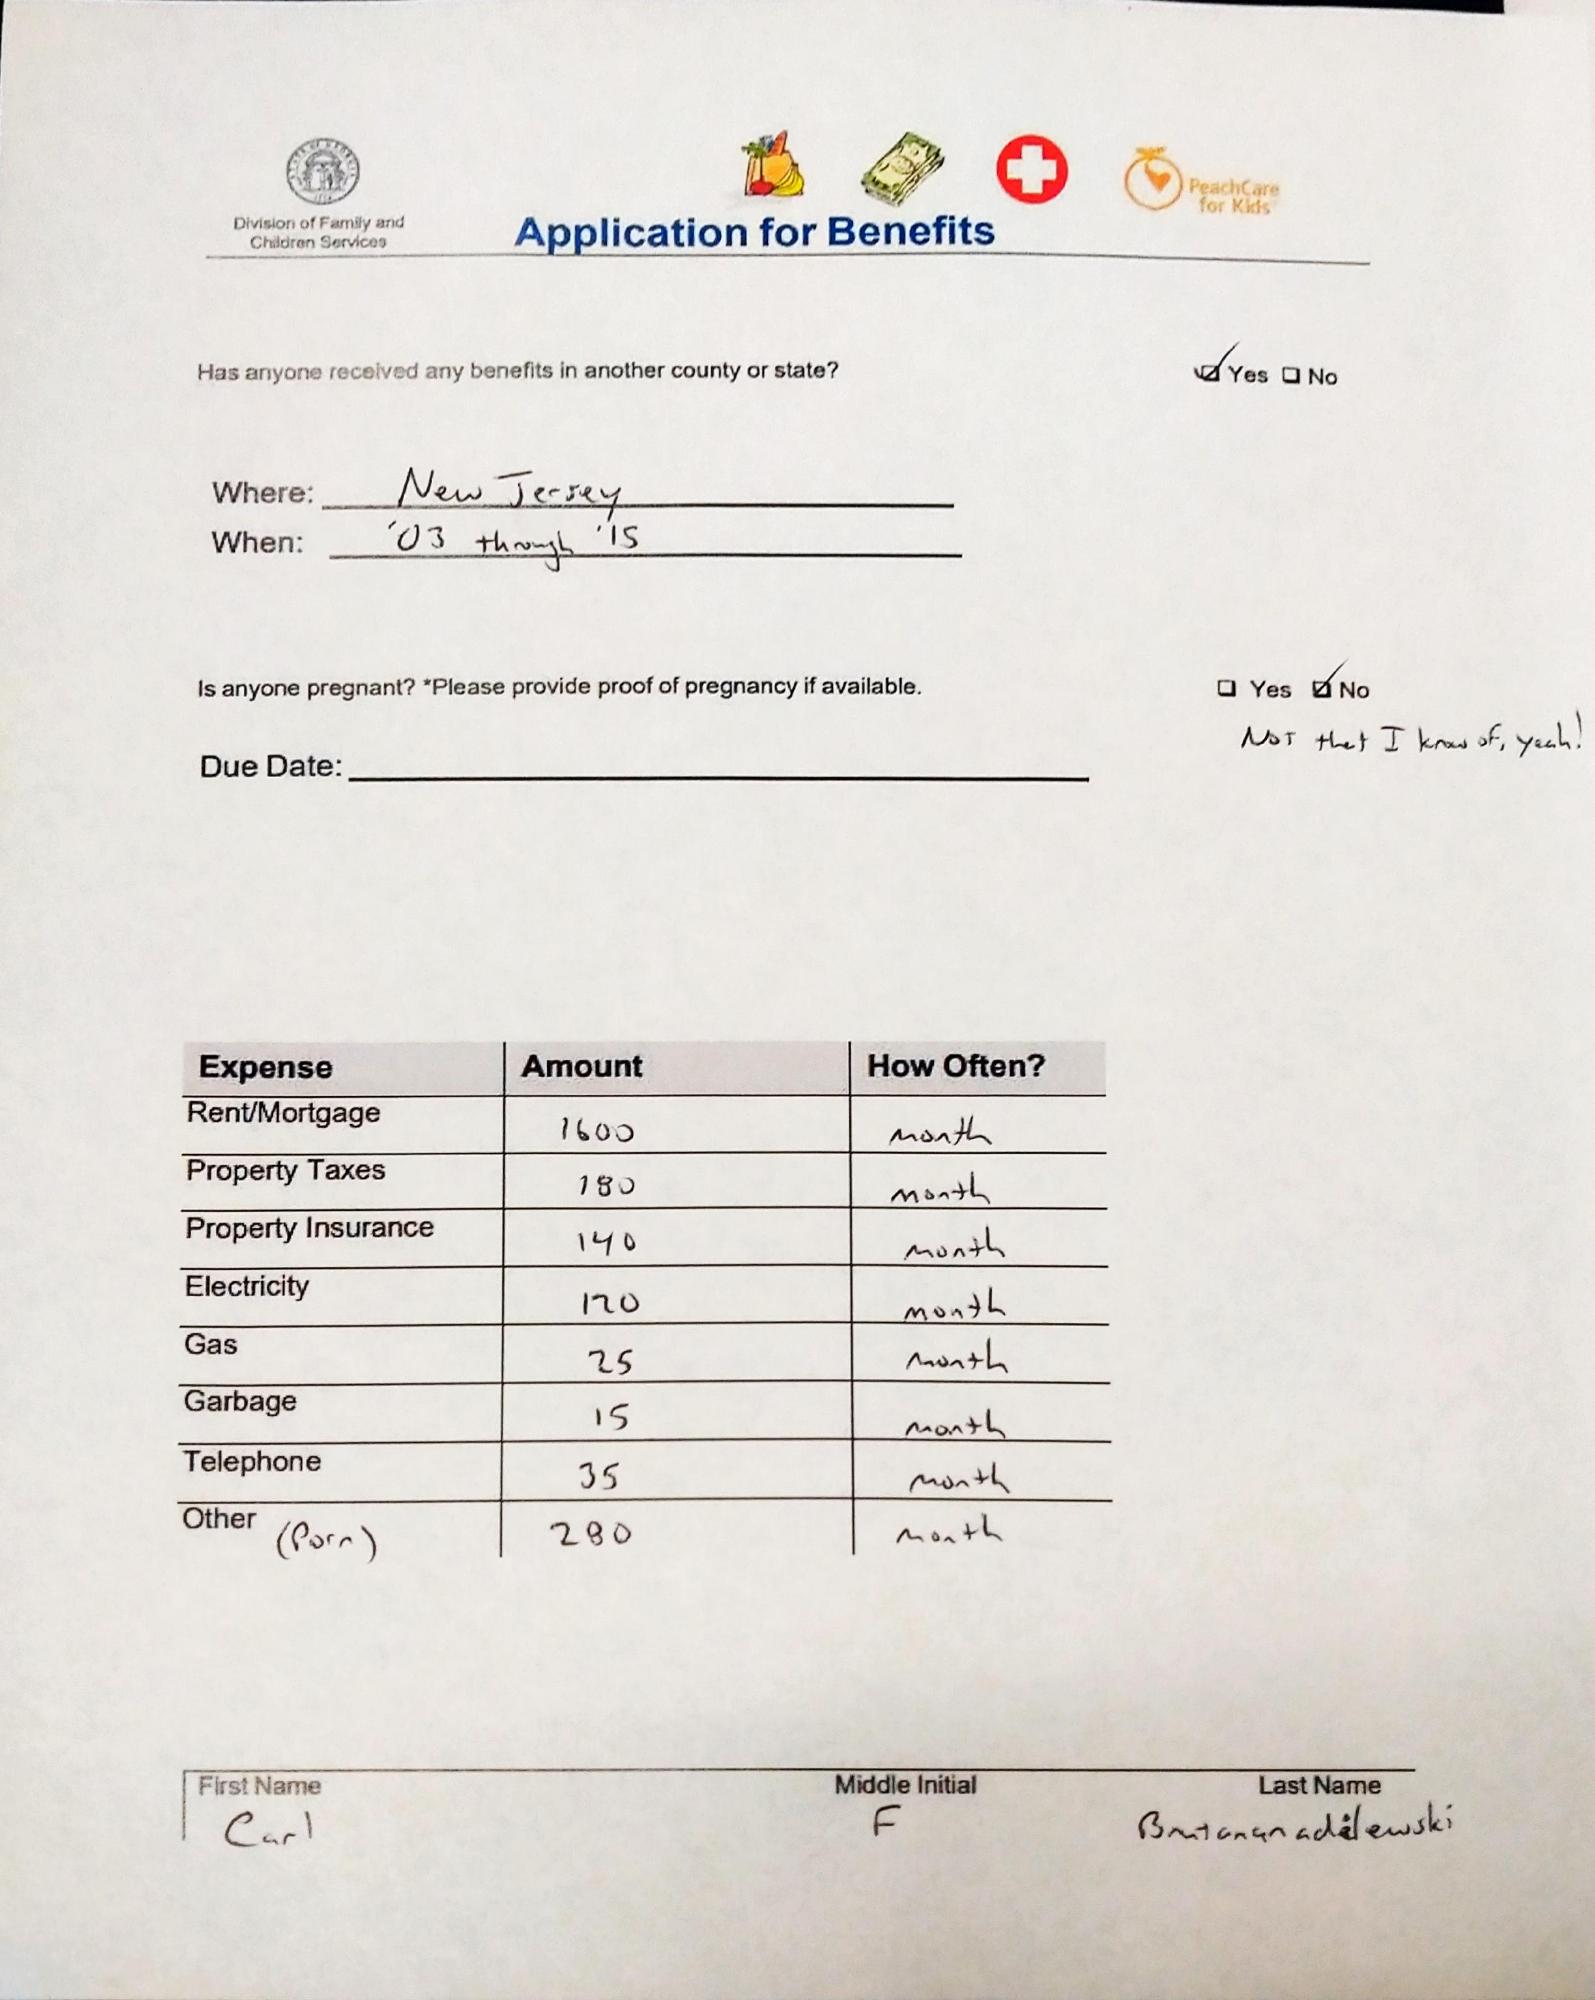 Division of Family and
Children Services
PeachCare
for Kids
Application for Benefits
Has anyone received any benefits in another county or state? Yes No
Where: New Jersey
When: '03 through '15
Is anyone pregnant? *Please provide proof of pregnancy if available. Yes No
Not that I know of, yeah!
Due Date:
Expense Amount How Often?
Rent/Mortgage 1600 month
Property Taxes 180 month
Property Insurance 140 month
Electricity 120 month
Gas 25 month
Garbage 15 month
Telephone 35 month
Other (Porn) 280 month
First Name Middle Initial Last Name
Carl F Brutananadilewski